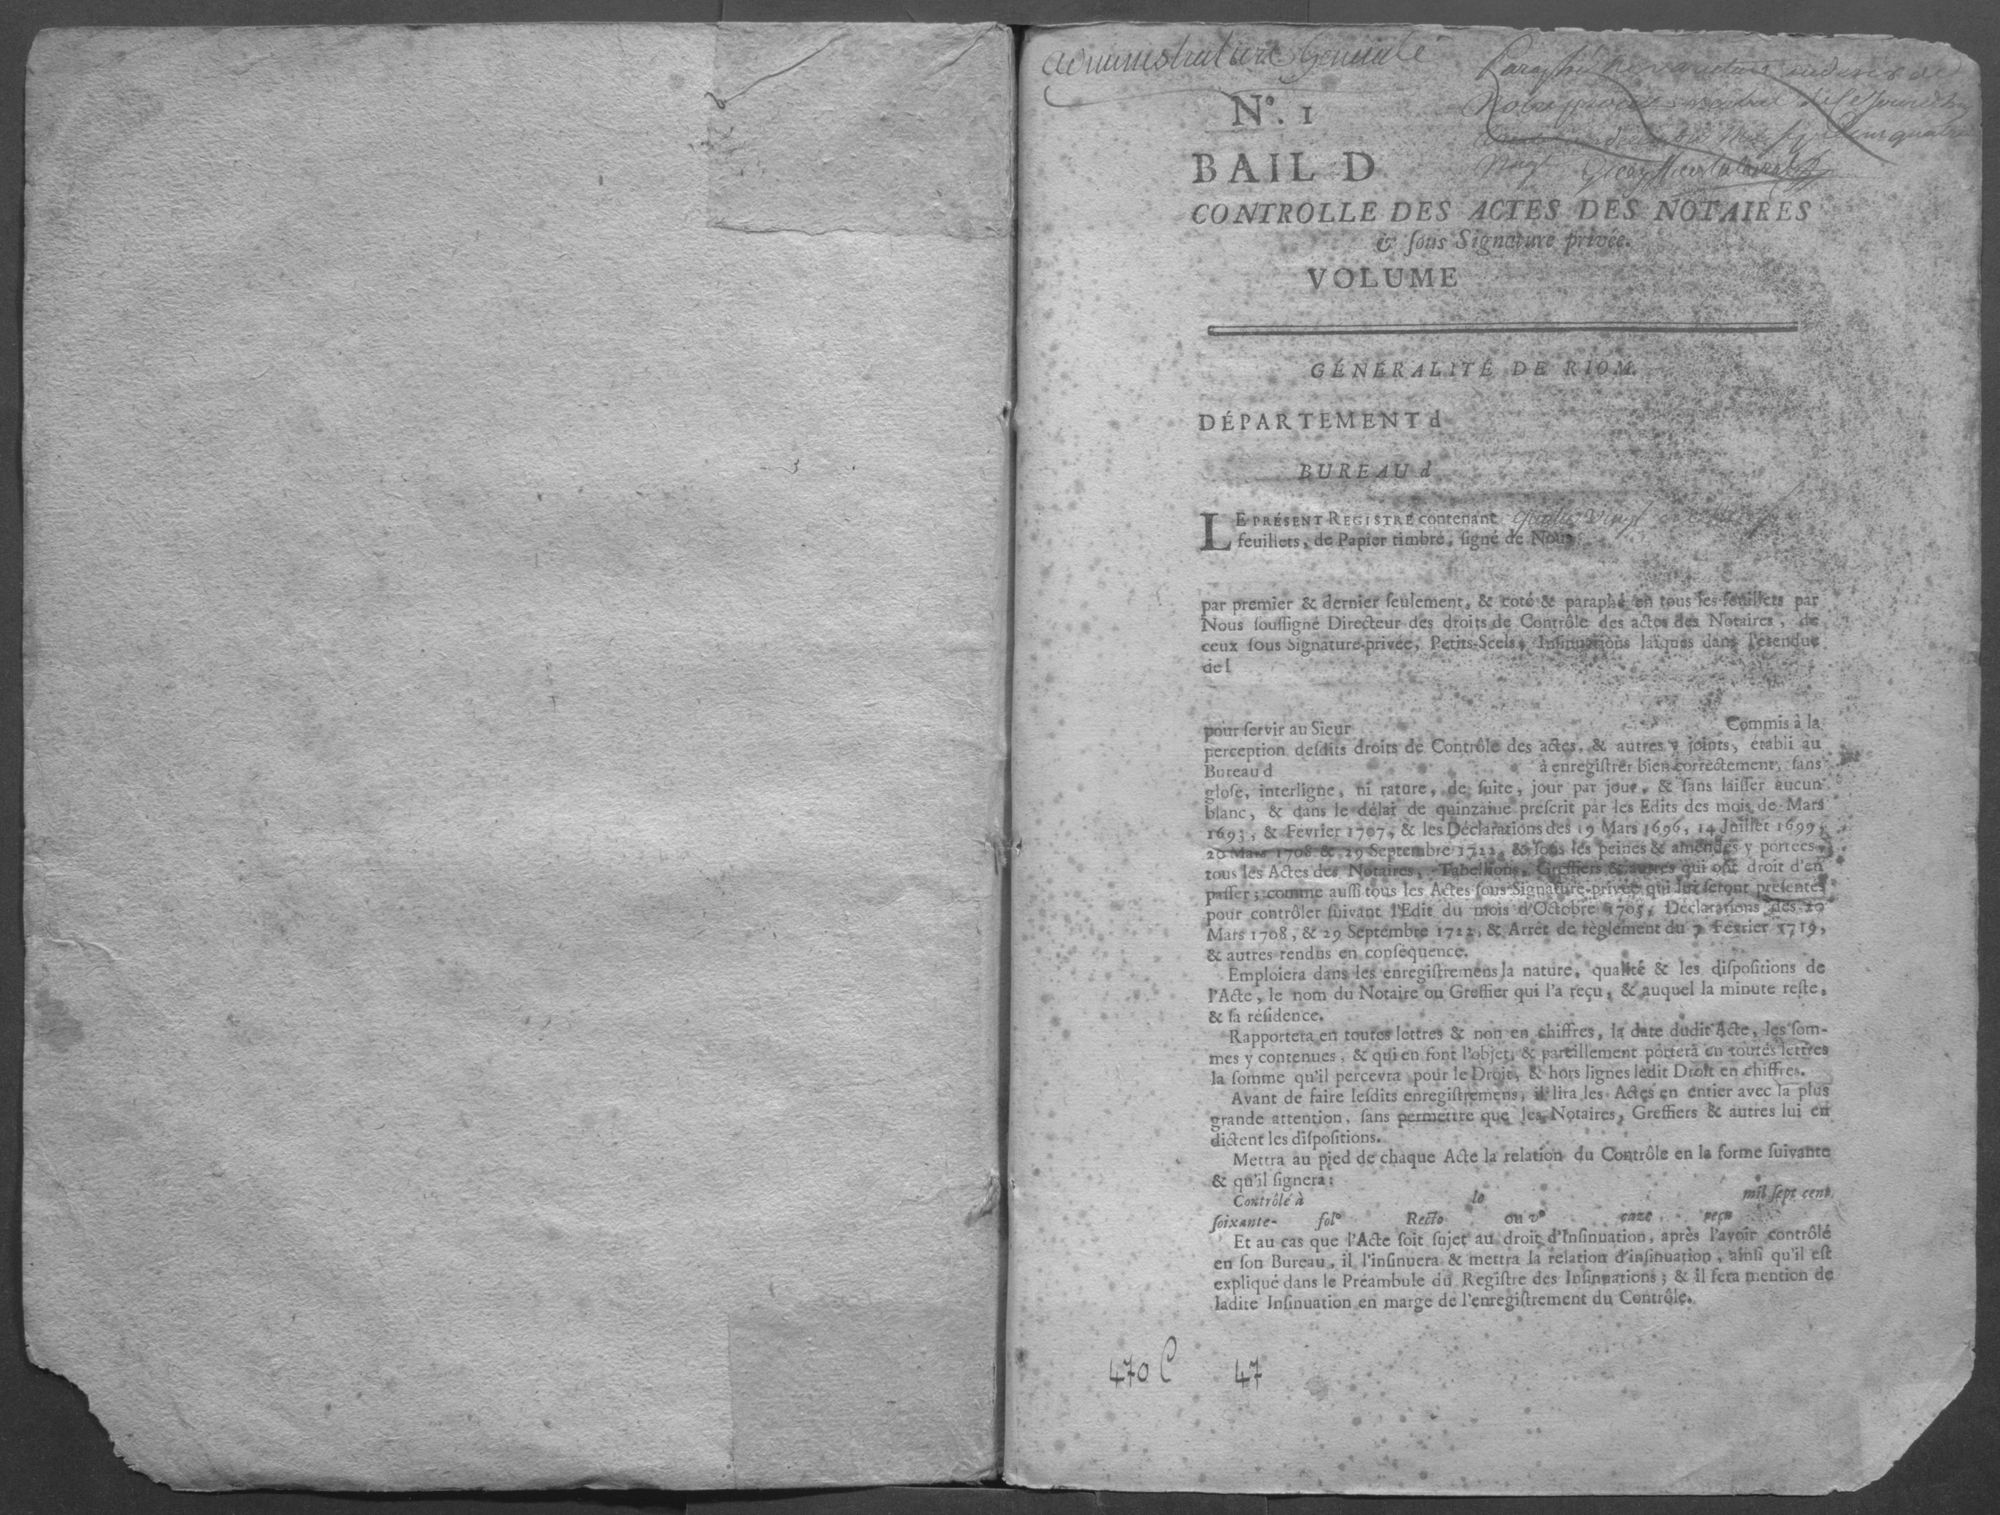 administration Generale
N°. 1
BAIL D
CONTROLLE DES ACTES DES NOTAIRES
& ſous Signature privée.
VOLUME
GÉNÉRALITÉ DE RIOM.
DÉPARTEMENT d
BUREAU d
LE PRÉSENT REGISTRE contenant quatre vingt
feuillets, de Papier timbré, ſigné de Nous
par premier & dernier ſeulement, & coté & paraphé en tous les feuillets par
Nous ſouſſigné Directeur des droits de Contrôle des actes des Notaires, de
ceux ſous Signature-privée, Petits-Scels, Inſinuations laïques dans l'étendue
de l
pour ſervir au Sieur Commis à la
perception deſdits droits de Contrôle des actes, & autres y joints, établi au
Bureau d à enregiſtrer bien correctement, ſans
gloſe, interligne, ni rature, de ſuite, jour par jour, & ſans laiſſer aucun
blanc, & dans le délai de quinzaine preſcrit par les Edits des mois de Mars
1693, & Fevrier 1707, & les Déclarations des 19 Mars 1696, 14 Juillet 1699,
20 Mars 1708 & 29 Septembre 1722, & ſous les peines & amendes y portées,
tous les Actes des Notaires, Tabellions, Greffiers & autres qui ont droit d'en
paſſer; comme auſſi tous les Actes ſous Signature-privée qui lui ſeront préſentés
pour contrôler ſuivant l'Edit du mois d'Octobre 1705, Déclarations des 20
Mars 1708, & 29 Septembre 1722, & Arrêt de règlement du 7 Fevrier 1719,
& autres rendus en conſéquence.
Emploiera dans les enregiſtremens la nature, qualité & les diſpoſitions de
l'Acte, le nom du Notaire ou Greffier qui l'a reçu, & auquel la minute reſte,
& ſa réſidence.
Rapportera en toutes lettres & non en chiffres, la date dudit Acte, les ſom-
mes y contenues, & qui en font l'objet, & pareillement portera en toutes lettres
la ſomme qu'il percevra pour le Droit, & hors lignes ledit Droit en chiffres.
Avant de faire leſdits enregiſtremens, il lira les Actes en entier avec la plus
grande attention, ſans permettre que les Notaires, Greffiers & autres lui en
dictent les diſpoſitions.
Mettra au pied de chaque Acte la relation du Contrôle en la forme ſuivante
& qu'il ſignera:
Contrôlé à le mil ſept cent
ſoixante- fol° Recto ou v° caze reçu
Et au cas que l'Acte ſoit ſujet au droit d'Inſinuation, après l'avoir contrôlé
en ſon Bureau, il l'inſinuera & mettra la relation d'inſinuation, ainſi qu'il eſt
expliqué dans le Préambule du Regiſtre des Inſinuations; & il fera mention de
ladite Inſinuation en marge de l'enregiſtrement du Contrôle.
470 C 47